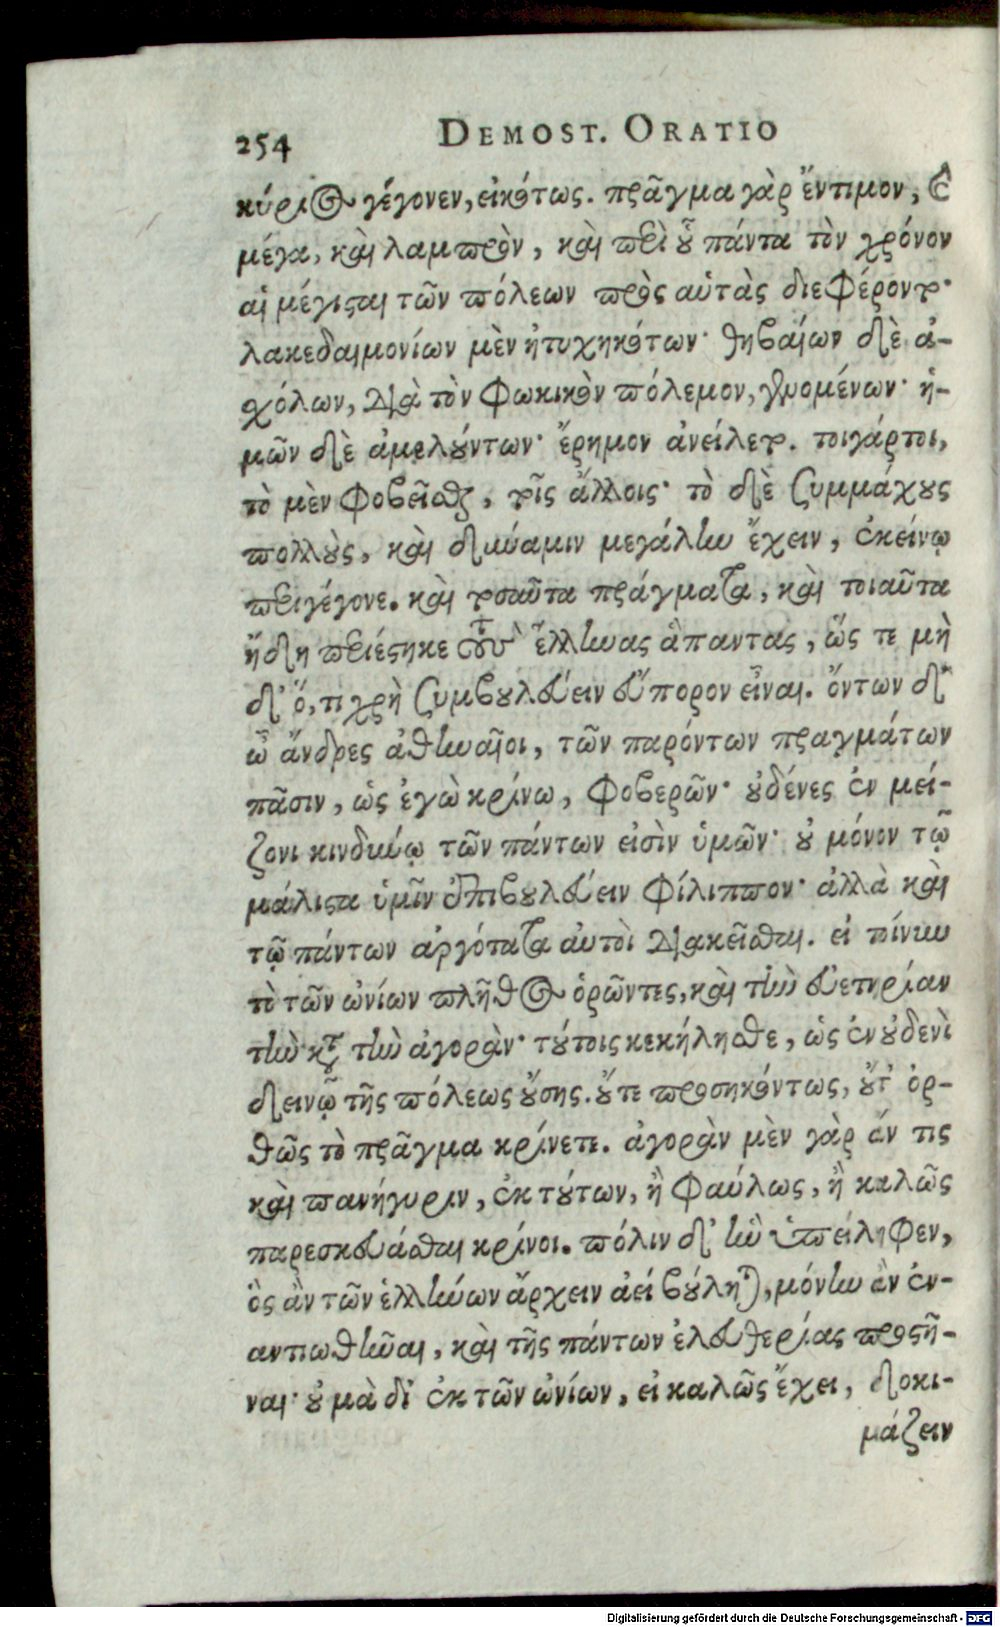 254 DEMOST. ORATIO
κύριος γέγονεν, εἰκότως. πρᾶγμα γὰρ ἔντιμον, καὶ
μέγα, καὶ λαμπρὸν, καὶ περὶ οὗ πάντα τὸν χρόνον
αἱ μέγισται τῶν πόλεων πρὸς αὑτὰς διεφέροντο·
λακεδαιμονίων μὲν ἠτυχηκότων· θηβαίων δὲ ἀ-
χόλων, διὰ τὸν Φωκικὸν πόλεμον, γενομένων· ἡ-
μῶν δὲ ἀμελούντων· ἔρημον ἀνείλετο. τοιγάρτοι,
τὸ μὲν φοβεῖσθαι, τοῖς ἄλλοις· τὸ δὲ συμμάχους
πολλοὺς, καὶ δύναμιν μεγάλην ἔχειν, ἐκείνῳ
περιγέγονε. καὶ τοσαῦτα πράγματα, καὶ τοιαῦτα
ἤδη περιέστηκε τοὺς ἕλληνας ἅπαντας, ὥς τε μὴ
δ' ὅ, τι χρὴ συμβουλεύειν εὔπορον εἶναι. ὄντων δ'
ὦ ἄνδρες ἀθηναῖοι, τῶν παρόντων πραγμάτων
πᾶσιν, ὡς ἐγὼ κρίνω, φοβερῶν· οὐδένες ἐν μεί-
ζονι κινδύνῳ τῶν πάντων εἰσὶν ὑμῶν· οὐ μόνον τῷ
μάλιστα ὑμῖν ἐπιβουλεύειν Φίλιππον· ἀλλὰ καὶ
τῷ πάντων ἀργότατα αὐτοὶ διακεῖσθαι. εἰ τοίνυν
τὸ τῶν ὠνίων πλῆθος ὁρῶντες, καὶ τὴν εὐετηρίαν
τὴν κατὰ τὴν ἀγορὰν· τούτοις κεκήλησθε, ὡς ἐν οὐδενὶ
δεινῷ τῆς πόλεως οὔσης. οὔτε προσηκόντως, οὔτ' ὀρ-
θῶς τὸ πρᾶγμα κρίνετε. ἀγορὰν μὲν γὰρ ἄν τις
καὶ πανήγυριν, ἐκ τούτων, ἢ φαύλως, ἢ καλῶς
παρεσκευάσθαι κρίνοι. πόλιν δ' ἣν ὑπείληφεν,
ὃς ἂν τῶν ἑλλήνων ἄρχειν ἀεί βούληται, μόνην ἂν ἐν-
αντιωθῆναι, καὶ τῆς πάντων ἐλευθερίας προστῆ-
ναι· οὐ μὰ δί ἐκ τῶν ὠνίων, εἰ καλῶς ἔχει, δοκι-
μάζειν
Digitalisierung gefördert durch die Deutsche Forschungsgemeinschaft - DFG